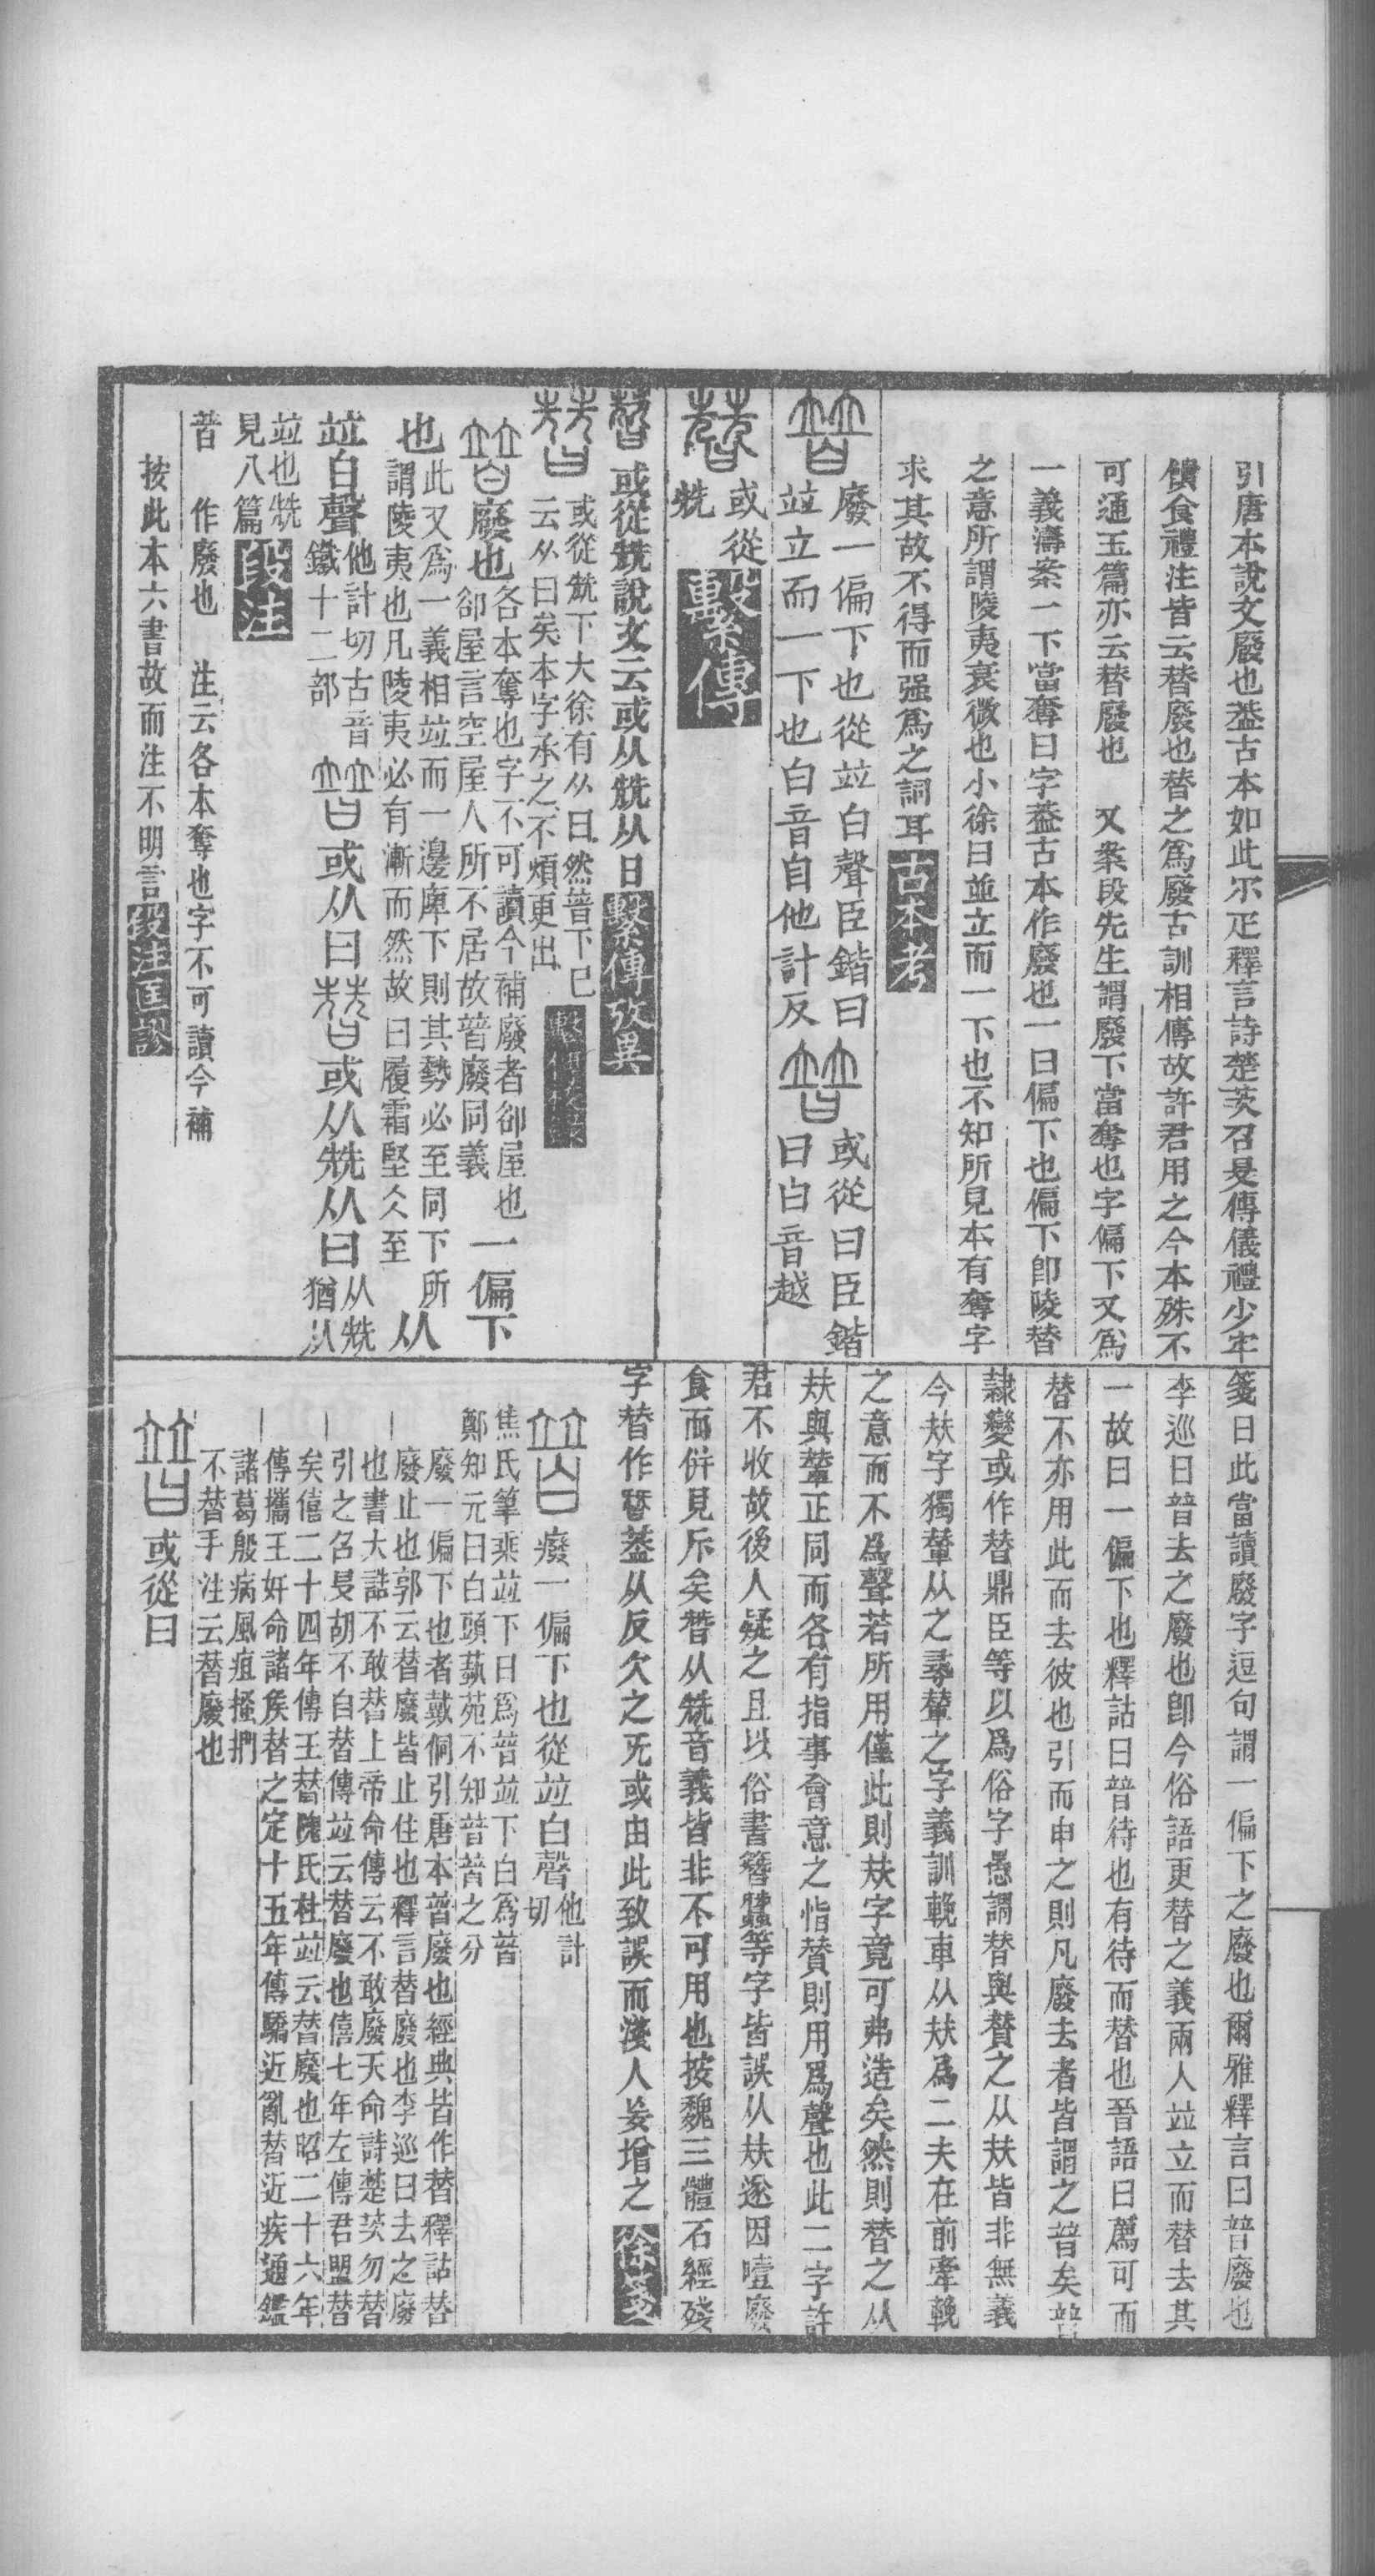 引唐本說文廢也蓋古本如此不疋釋言詩楚茨召旻傳儀禮少牢
饋食禮注皆云替廢也替之爲廢古訓相傳故許君用之今本殊不
可通玉篇亦云替廢也　又案段先生謂廢下當奪也字偏下又爲
一義濤案一下當奪曰字蓋古本作廢也一曰偏下也偏下卽陵替
之意所謂陵夷衰微也小徐曰並立而一下也不知所見本有奪字
求其故不得而强爲之詞耳古本考
廢一偏下也從竝白聲臣鍇曰
竝立而一下也白音自他計反
或從曰臣鍇
曰白音越
或從
兟
繫傳
或從兟說文云或从兟从日繫傳攷異
或從兟下大徐有从曰然暜下已
云从曰矣本字承之不煩更出
廢也各本奪也字不可讀今補廢者卻屋也
卻屋言空屋人所不居故暜廢同義
一偏下
也此又爲一義相竝而一邊庳下則其勢必至同下所
謂陵夷也凡陵夷必有漸而然故曰履霜堅仌至
从
竝白聲他計切古音
鐵十二部
或从曰
或从兟从曰从兟
猶从
竝也兟
見八篇
段注
暜　作廢也　注云各本奪也字不可讀今補
按此本六書故而注不明言段注匡謬
箋曰此當讀廢字逗句謂一偏下之廢也爾雅釋言曰暜廢也
李巡曰暜去之廢也卽今俗語更替之義兩人竝立而替去其
一故曰一偏下也釋詁曰暜待也有待而替也晉語曰薦可而
替不亦用此而去彼也引而申之則凡廢去者皆謂之暜矣暜
隷變或作替鼎臣等以爲俗字愚謂替與賛之从㚘皆非無義
今㚘字獨輦从之尋輦之字義訓輓車从㚘爲二夫在前牽輓
之意而不爲聲若所用僅此則㚘字竟可弗造矣然則替之从
㚘與輦正同而各有指事會意之恉賛則用爲聲也此二字許
君不收故後人疑之且以俗書簪蠶等字皆誤从㚘遂因噎廢
食而併見斥矣朁从兟音義皆非不可用也按魏三體石經殘
字替作朁蓋从反欠之旡或由此致誤而淺人妄增之徐箋
癈一偏下也從竝白聲他計
切
焦氏筆乘竝下曰爲暜竝下白爲普
鄭知元曰白頭蓺苑不知暜普之分
廢一偏下也者戴侗引唐本暜廢也經典皆作替釋詁替
廢止也郭云替廢皆止住也釋言替廢也李巡曰去之廢
也書大誥不敢替上帝命傳云不敢廢天命詩楚茨勿替
引之召旻胡不自替傳竝云替廢也僖七年左傳君盟替
矣僖二十四年傳王替隗氏杜竝云替廢也昭二十六年
傳攜王奸命諸矦替之定十五年傳驕近亂替近疾通鑑
諸葛殷病風疽搔捫
不替手注云替廢也
或從曰